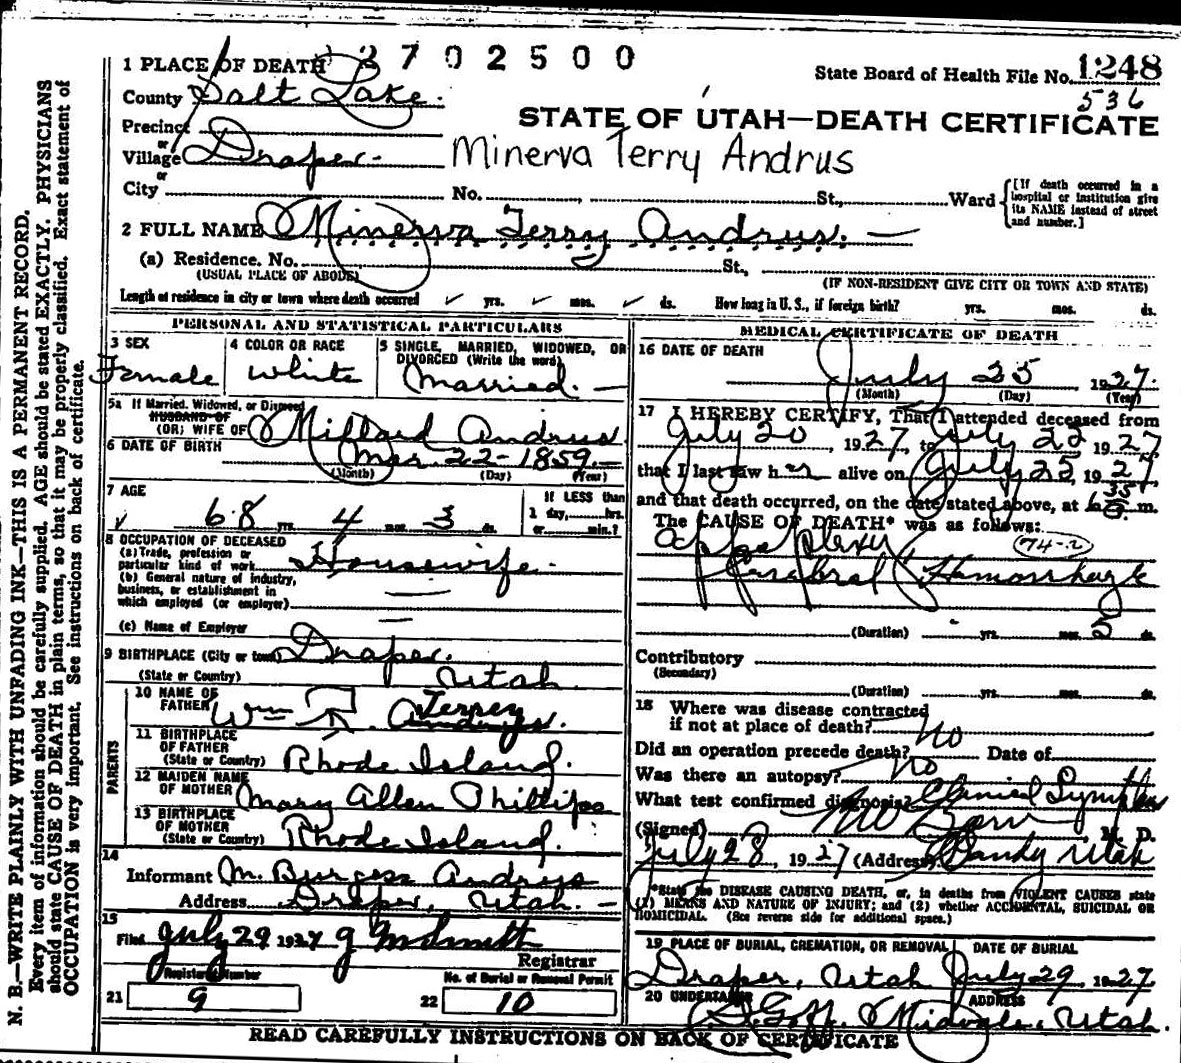 3702500
1 PLACE OF DEATH
State Board of Health File No. 1248
536
County Salt Lake.
STATE OF UTAH—DEATH CERTIFICATE
Precinct
or
Village Draper.
Minerva Terry Andrus
or
City No. St., Ward
[If death occurred in a hospital or institution give its NAME instead of street and number.]
2 FULL NAME Minerva Terry Andrus.
(a) Residence. No. St.,
(USUAL PLACE OF ABODE)
(IF NON-RESIDENT GIVE CITY OR TOWN AND STATE)
Length of residence in city or town where death occurred yrs. mos. ds. How long in U. S., if foreign birth? yrs. mos. ds.
PERSONAL AND STATISTICAL PARTICULARS
3 SEX
Female
4 COLOR OR RACE
White
5 SINGLE, MARRIED, WIDOWED, OR
DIVORCED (Write the word)
Married.
5a If Married, Widowed, or Divorced
HUSBAND OF
(OR) WIFE OF Millard Andrus
6 DATE OF BIRTH
Mar. 22 - 1859.
(Month) (Day) (Year)
7 AGE
68 yrs. 4 mos. 3 ds.
If LESS than
1 day, hrs.
or min.?
8 OCCUPATION OF DECEASED
(a) Trade, profession or
particular kind of work Housewife.
(b) General nature of industry,
business, or establishment in
which employed (or employer)
(c) Name of Employer
9 BIRTHPLACE (City or town) Draper.
(State or Country) Utah
PARENTS
10 NAME OF
FATHER Wm Terrey
Andrus.
11 BIRTHPLACE
OF FATHER
(State or Country) Rhode Island.
12 MAIDEN NAME
OF MOTHER Mary Allen Phillips
13 BIRTHPLACE
OF MOTHER
(State or Country) Rhode Island.
14
Informant M. Burgess Andrus
Address Draper, Utah.
15
Filed July 29 1927
Registrar
Registered Number
21 9
No. of Burial or Removal Permit
22 10
MEDICAL CERTIFICATE OF DEATH
16 DATE OF DEATH
July 25 1927.
(Month) (Day) (Year)
17 I HEREBY CERTIFY, That I attended deceased from
July 20, 1927, to July 22 1927,
that I last saw her alive on July 25, 1927,
and that death occurred, on the date stated above, at m.
The CAUSE OF DEATH* was as follows:
74-2
(Duration) yrs. mos. 5 ds.
Contributory
(Secondary)
(Duration) yrs. mos. ds.
18 Where was disease contracted
if not at place of death?
No
Did an operation precede death? Date of
Was there an autopsy? No
What test confirmed diagnosis?
(Signed) M. D.
July 28, 1927 (Address) Sandy Utah
*State the DISEASE CAUSING DEATH, or, in deaths from VIOLENT CAUSES state
(1) MEANS AND NATURE OF INJURY; and (2) whether ACCIDENTAL, SUICIDAL OR
HOMICIDAL. (See reverse side for additional space.)
19 PLACE OF BURIAL, CREMATION, OR REMOVAL DATE OF BURIAL
Draper, Utah July 29 1927.
20 UNDERTAKER ADDRESS
Goff. Midvale, Utah.
READ CAREFULLY INSTRUCTIONS ON BACK OF CERTIFICATE
N. B.—WRITE PLAINLY WITH UNFADING INK—THIS IS A PERMANENT RECORD.
Every item of information should be carefully supplied. AGE should be stated EXACTLY. PHYSICIANS
should state CAUSE OF DEATH in plain terms, so that it may be properly classified. Exact statement of
OCCUPATION is very important. See instructions on back of certificate.